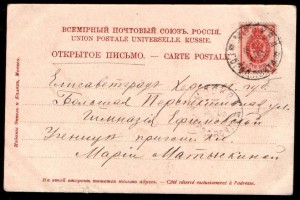 ВСЕМІРНЫЙ ПОЧТОВЫЙ СОЮЗЪ. РОССІЯ.
UNION POSTALE UNIVERSELLE. RUSSIE.
ОТКРЫТОЕ ПИСЬМО. — CARTE POSTALE
Елисаветградъ Херсон. губ
Большая Перспективная ул.
Гимназія Ефимовской
Ученицѣ
Маріи Матыкиной
На этой сторонѣ пишется только адресъ. — Côté réservé exclusivement à l'adresse.